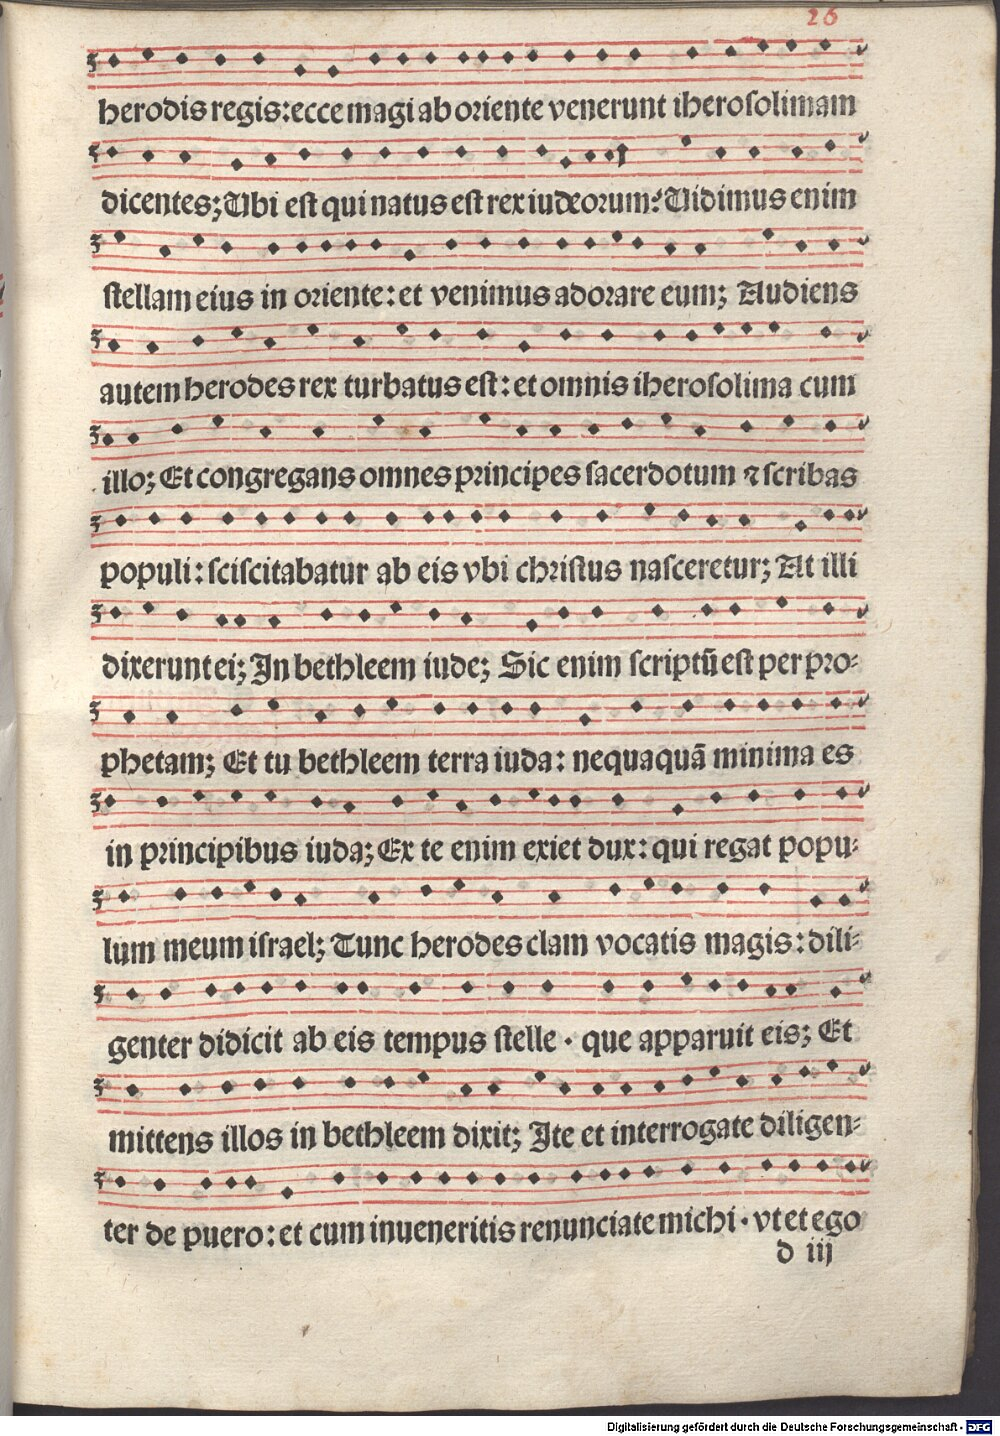 26
herodis regis: ecce magi ab oriente venerunt iherosolimam
dicentes; Ubi est qui natus est rex iudeorum? Vidimus enim
stellam eius in oriente: et venimus adorare eum; Audiens
autem herodes rex turbatus est: et omnis iherosolima cum
illo; Et congregans omnes principes sacerdotum ⁊ scribas
populi: sciscitabatur ab eis vbi christus nasceretur; At illi
dixerunt ei; In bethleem iude; Sic enim scriptū est per pro-
phetam; Et tu bethleem terra iuda: nequaquā minima es
in principibus iuda; Ex te enim exiet dux: qui regat popu-
lum meum israel; Tunc herodes clam vocatis magis: dili-
genter didicit ab eis tempus stelle · que apparuit eis; Et
mittens illos in bethleem dixit; Ite et interrogate diligen-
ter de puero: et cum inueneritis renunciate michi · vt et ego
d iij
Digitalisierung gefördert durch die Deutsche Forschungsgemeinschaft - DFG